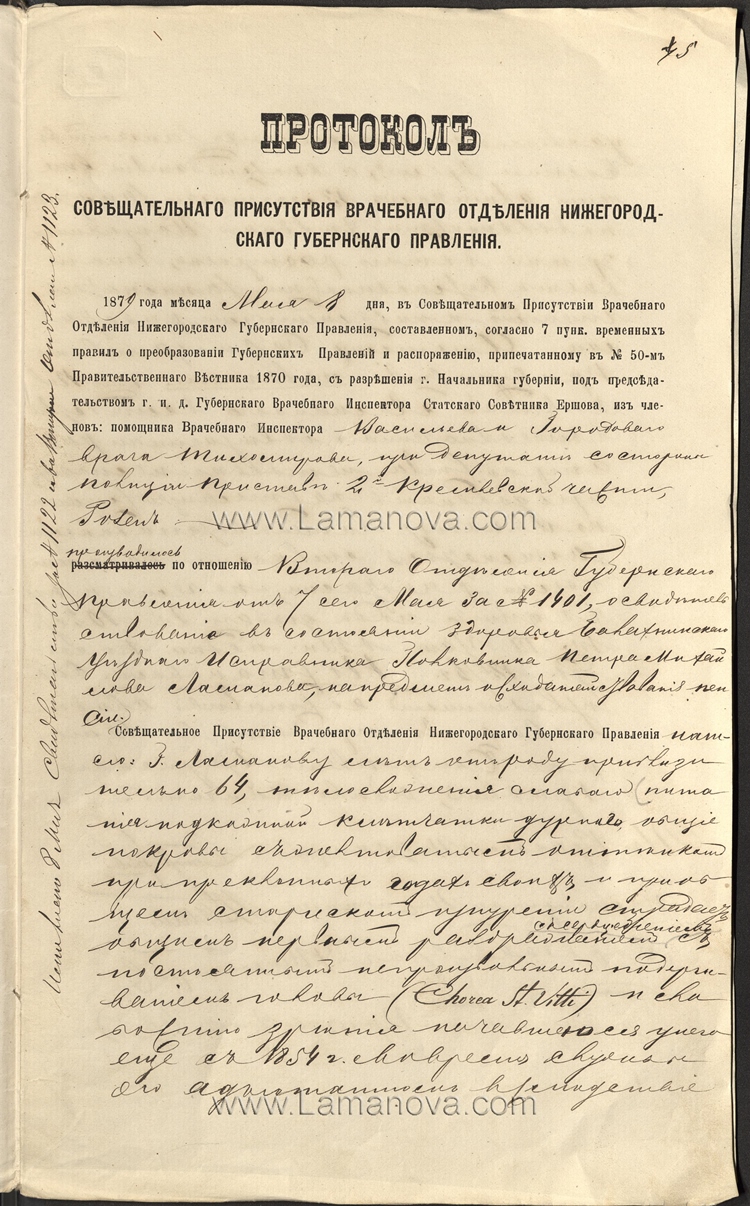 45
ПРОТОКОЛЪ
СОВѢЩАТЕЛЬНАГО ПРИСУТСТВІЯ ВРАЧЕБНАГО ОТДѢЛЕНІЯ НИЖЕГОРОД-
СКАГО ГУБЕРНСКАГО ПРАВЛЕНІЯ.
1879 года мѣсяца Мая 8 дня, въ Совѣщательномъ Присутствіи Врачебнаго
Отдѣленія Нижегородскаго Губернскаго Правленія, составленномъ, согласно 7 пунк. временныхъ
правилъ о преобразованіи Губернскихъ Правленій и распоряженію, припечатанному въ № 50-мъ
Правительственнаго Вѣстника 1870 года, съ разрѣшенія г. Начальника губерніи, подъ предсѣда-
тельствомъ г. и. д. Губернскаго Врачебнаго Инспектора Статскаго Совѣтника Ершова, изъ чле-
новъ: помощника Врачебнаго Инспектора Васильева и Городоваго
врача Тихомирова, при депутатѣ со стороны
полиціи Приставѣ 2й Кремлевской части,
www.Lamanova.com
производилось
разсматривалось по отношенію Втораго Отдѣленія Губернскаго
Правленія отъ 7 сего Мая за № 1401, освидѣтель
ствованіе въ состояніи здоровья Балахнинскаго
Уѣзднаго Исправника Полковника Петра Михай
лова Ламанова, на предметъ исходатайствованія пен
сіи.
Совѣщательное Присутствіе Врачебнаго Отдѣленія Нижегородскаго Губернскаго Правленія наш-
ло: Г. Ламанову лѣтъ отъ роду приблизи
тельно 64, тѣлосложенія слабаго, пита
нія подкожной клѣтчатки дурнаго, общіе
покровы съ желтоватымъ оттѣнкомъ
при преклонныхъ годахъ своихъ и при об
щемъ старческомъ
страдаетъ
общимъ нервнымъ раздраженіемъ съ
постояннымъ непроизвольнымъ подерги
ваніемъ головы (Chorea St. Viti) и сла
бостію зрѣнія начавшеюся у него
еще съ 1854 г. во время служенія
его адъютантомъ вслѣдствіе
www.Lamanova.com
Исполнено 8 Мая Свидѣтельство за № 1122 и во Второе Отдѣленіе № 1123.